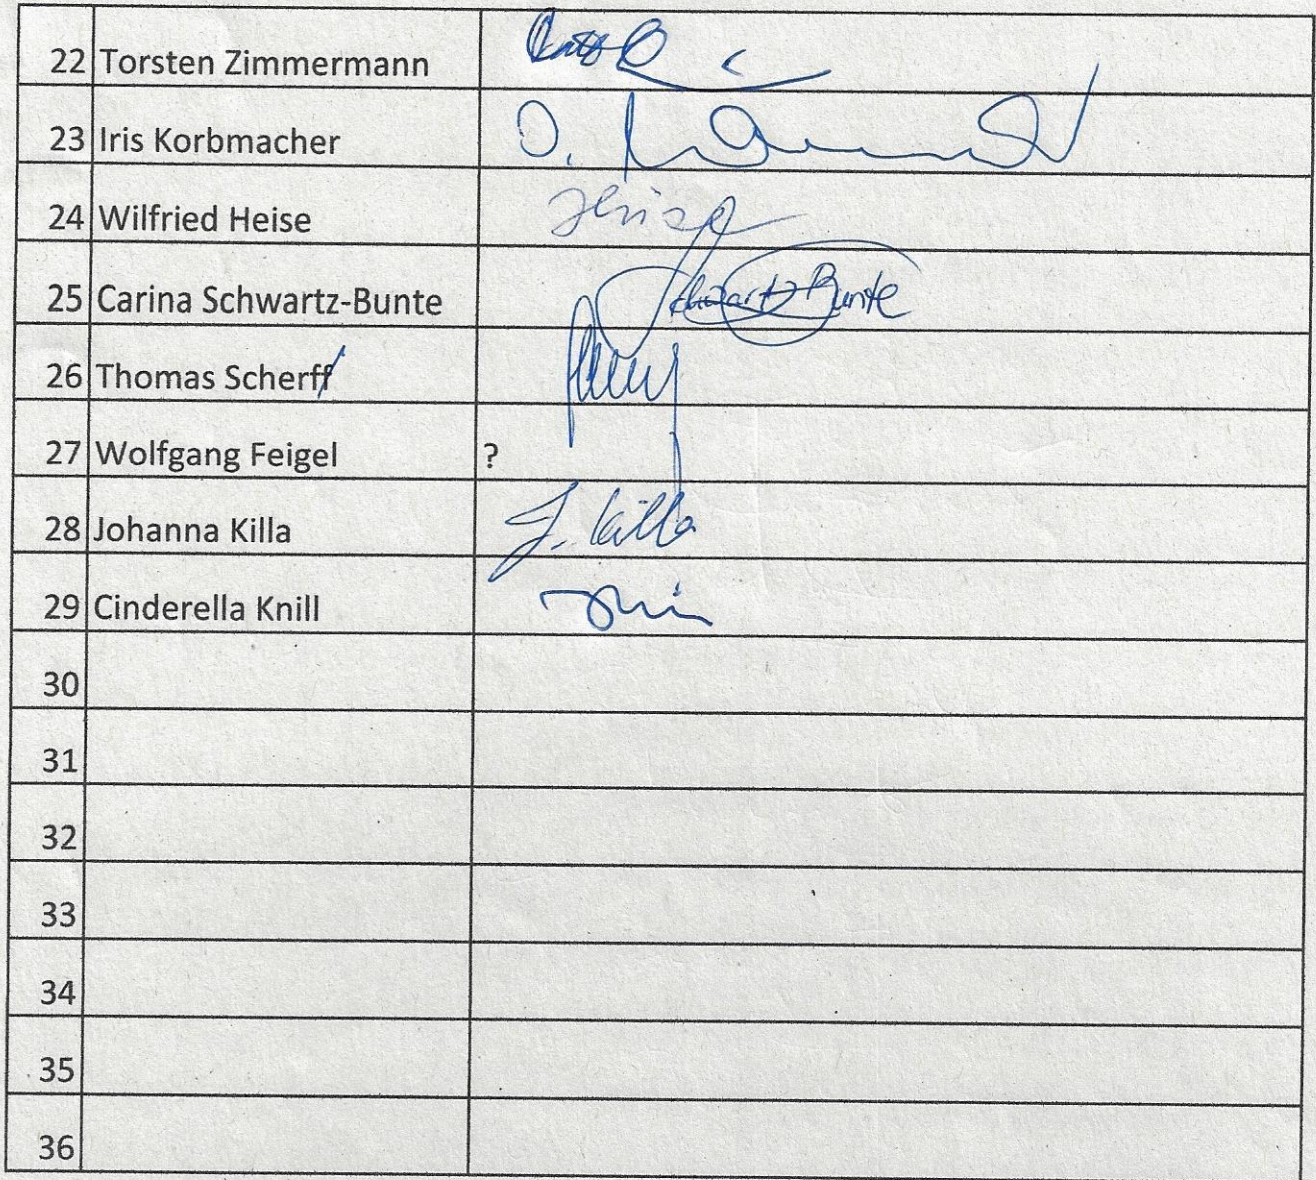 22 Torsten Zimmermann
23 Iris Korbmacher
24 Wilfried Heise Heise
25 Carina Schwartz-Bunte Schwartz-Bunte
26 Thomas Scherff
27 Wolfgang Feigel ?
28 Johanna Killa J. Killa
29 Cinderella Knill
30
31
32
33
34
35
36